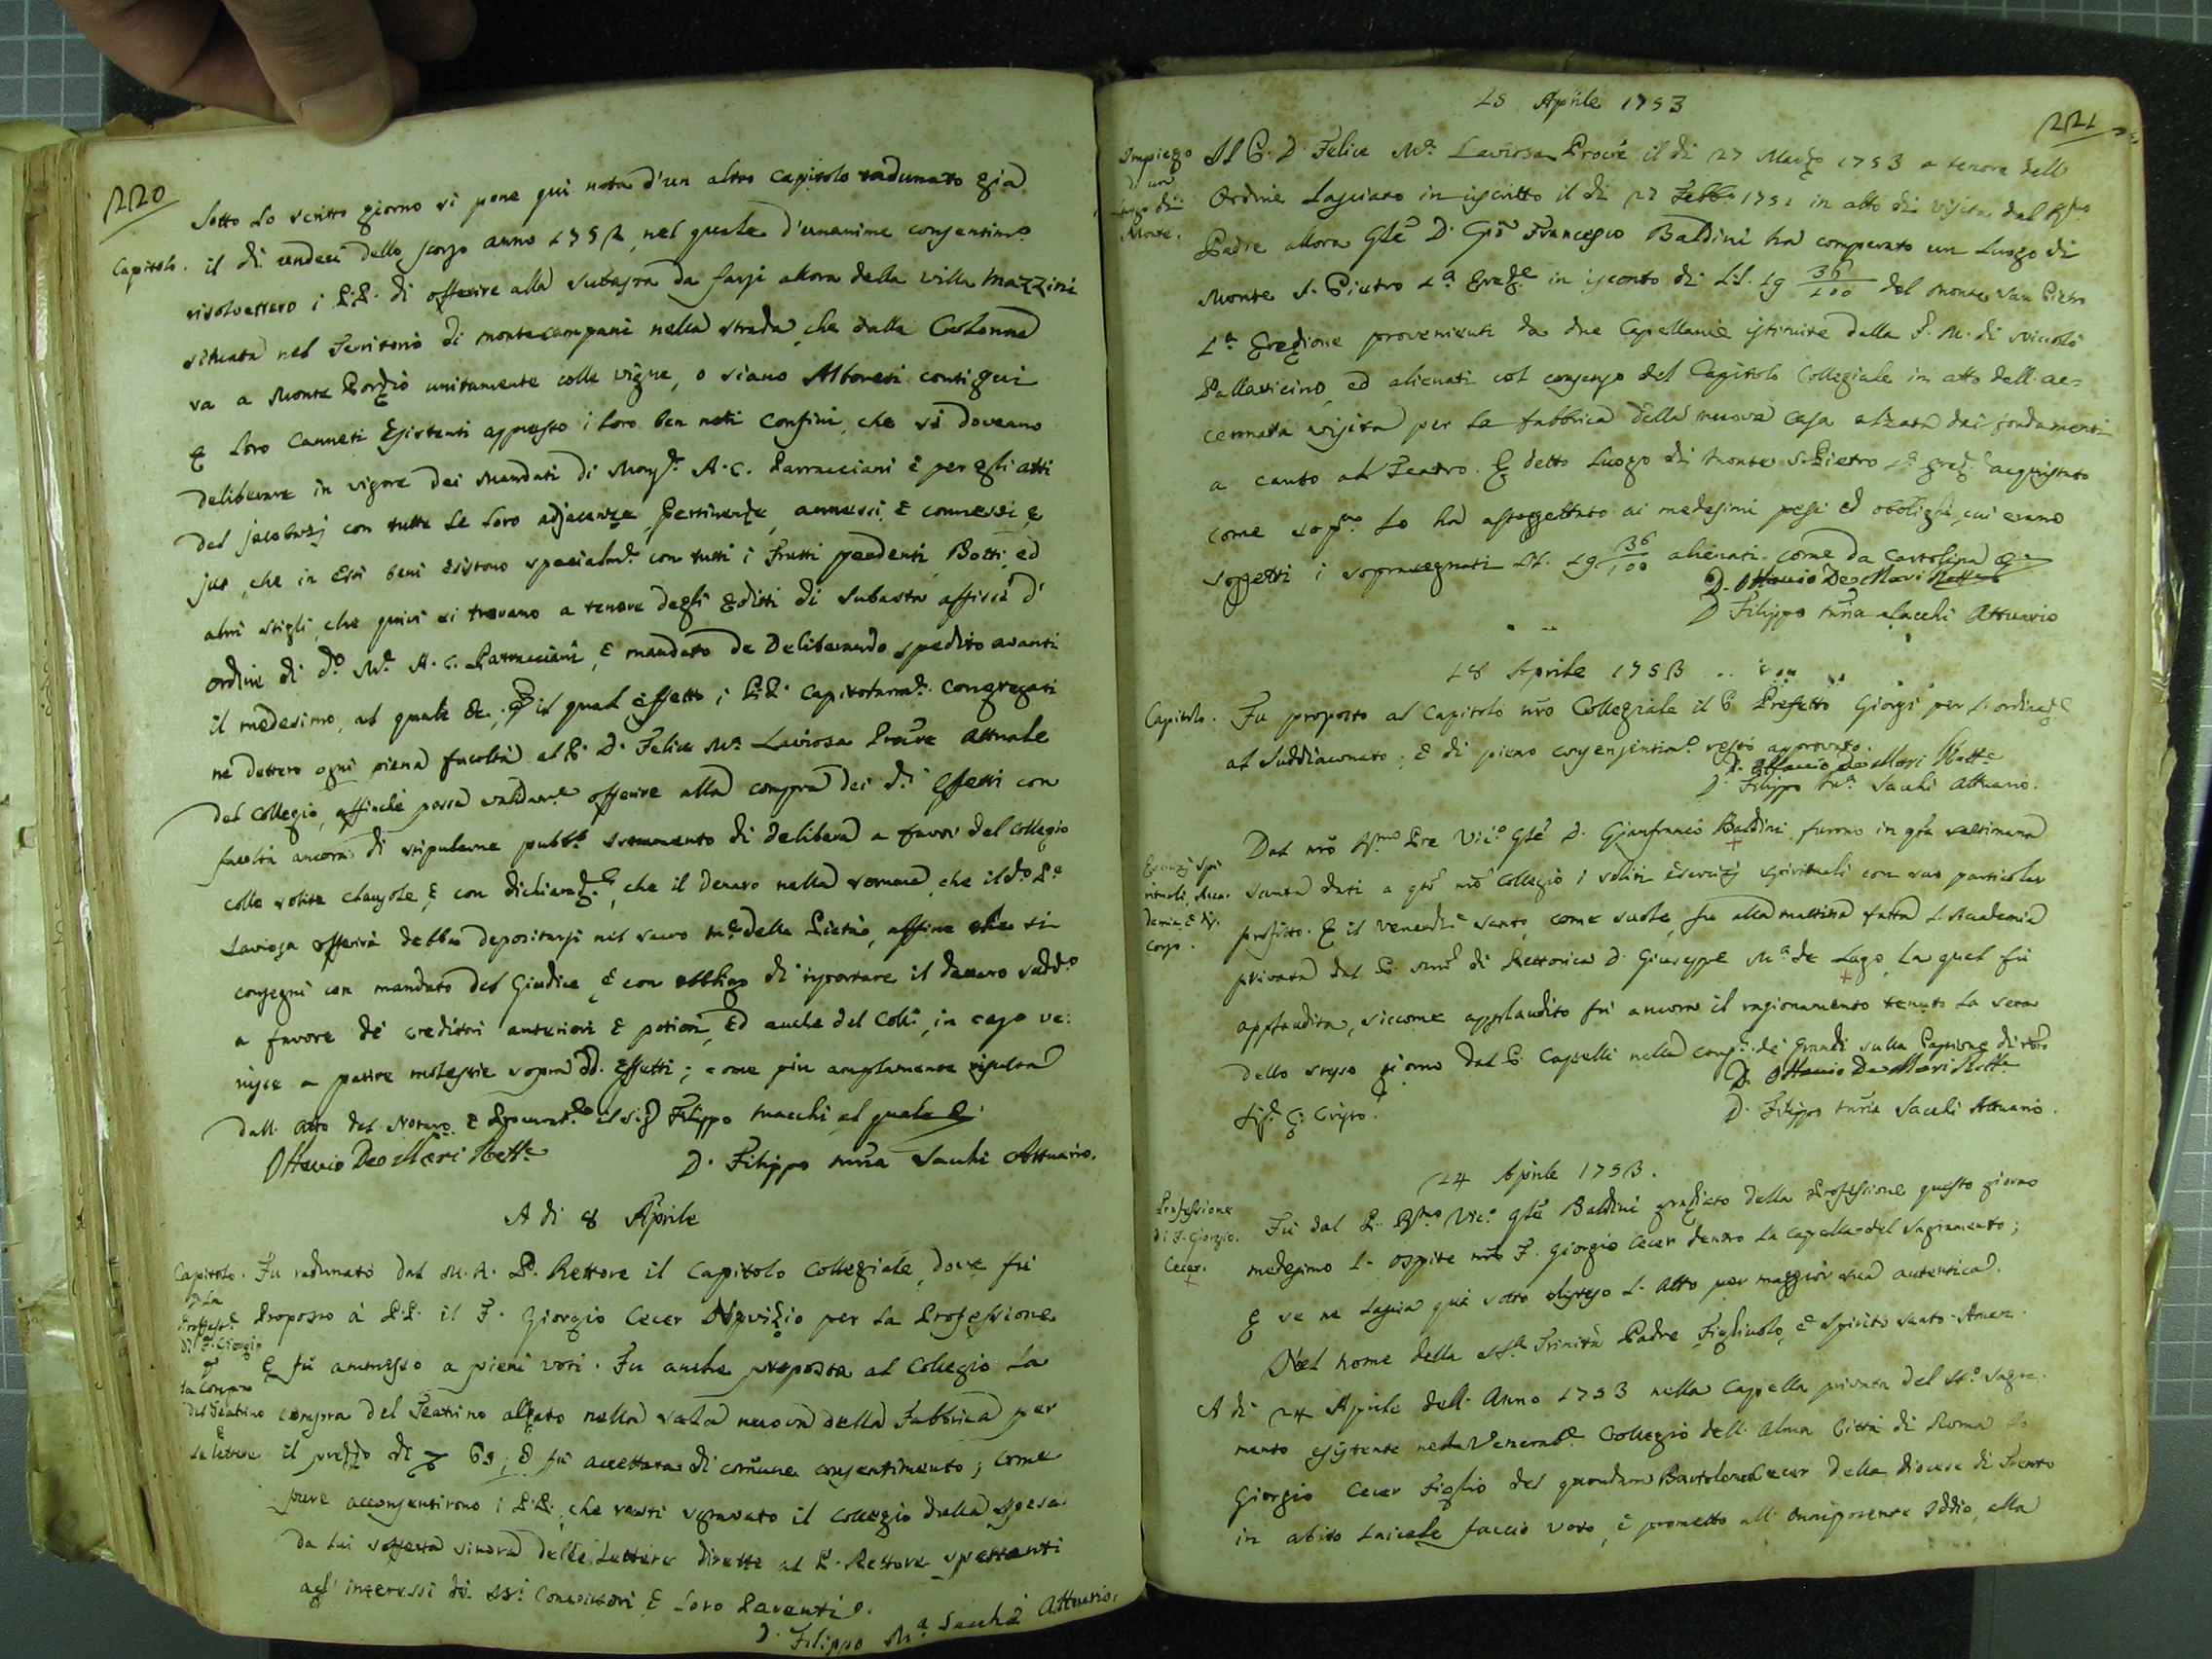 220
Sotto lo scritto giorno si pone qui nota d'un altro capitolo radunato già
Capitolo. il dì undeci dello scorso anno 1752, nel quale d'unanime consentimo
risolvettero i P.P. di offerire alla subasta da farsi allora della villa Mazzini
situata nel Territorio di montecompani nella strada, che dalla Colonna
va a Monte Porzio unitamente colle vigne, o siano Alboreti contigui
e loro Canneti Esistenti appresso i loro ben noti Confini, che si doveano
deliberare in vigore dei Mandati di Monsr. A.C. Parracciani e per gli atti
del jacobuzj con tutte le loro adjacenze, Pertinenze, annessi, e connessi, e
jus, che in Essi beni esistono specialme. con tutti i Frutti pendenti, Botti, ed
altri stigli, che quivi si trovano a tenore degli Editti di Subasta affissi d'
ordine di do. Mr. A.C. Parracciani, e mandato de Deliberando spedito avanti
il medesimo, al quale &c. P il qual effetto i P.P. Capitolarme. Congregati
ne dettero ogni piena facoltà al P. D. Felice Ma. Laviosa Procre attuale
del Collegio, affinchè possa validame offerire alla compra dei di. effetti con
facoltà ancora di stipularne pubbo. istrumento di delibera a favor del Collegio
colle solite clausole, e con dichiaraze., che il denaro nella somma, che il do. Pe
Laviosa offerirà debba depositarsi nel sacro Me. della Pietà, affine che si
consegni con mandato del Giudice, e con obbligo di riportare il denaro sudd.o
a favore de' creditori anteriori e potiori, Ed anche del Coll:o, in caso ve:
nisse a patire molestie sopra dd. effetti; come piu amplamente risulta
dall'atto del Notaro, e Procurato. il Sig Filippo Macchi al quale &.
Ottavio De Mari Rette
D. Filippo Maria Sacchi Attuario.
A di 8 Aprile
Capitolo. Fu radunato dal M.R. P. Rettore il Capitolo Collegiale, dove fu
P la
Professe. Proposto à P.P. il F. Giorgio Cecer Novizio per la Professione
di F. Giorgio
e fù ammesso a pieni voti. Fu anche proposta al Collegio la
la Compra
del Teatrino compra del Teatrino alzato nella sala nuova della Fabbrica per
e
le lettere il prezzo di 65; e fù accettata di comune consentimento; come
pure acconsentirono i P.P., che resti sgravato il Collegio dalla spesa
da lui sofferta sinora delle Lettere dirette al P. Rettore spettanti
agl' interessi de' SSi. Convittori e loro Parenti &.
D. Filippo Ma Sacchi Attuario.
221
15 Aprile 1753
Impiego Il P. D. Felice Ma. Laviosa Procre il dì 27 Marzo 1753 a tenore dell'
d'un
Luogo di Ordine lasciato in iscritto il dì 27 Febbo. 1751 in atto di visita dal Rmo
Monte. Padre allora Gle D. Gio Francesco Baldini ha comperato un Luogo di
Monte S. Pietro 1a Erez.e in isconto di LL. 19 36/100 del monte San Pietro
1a. Erezione provenienti da due Capellanie istituite dalla P. M. di Niccolò
Pallavicino, ed alienati col consenso del Capitolo Collegiale in atto dell'ac=
cennata visita per la fabbrica della nuova Casa alzata dai fondamenti
a canto al Teatro. E detto Luogo di Monte S. Pietro 1a. Erez.e acquistato
come sopra lo ha assoggettato ai medesimi pesi ed oblighi, cui erano
soggetti i soprasegnati LL. 19 36/100 alienati come da Cartolina &
D. Ottavio De Mari Rette
D. Filippo Maria Sacchi Attuario
18 Aprile 1753
Capitolo. Fu proposto al Capitolo nro Collegiale il P. Prefetto Giorgi per l'ordinaze
al Suddiaconato; e di pieno consentimo. restò approvato.
D. Ottavio De Mari Rette
D. Filippo Ma. Sacchi Attuario.
Dal nro Rmo Pre Vic.o Gle D. Gianfranco Baldini furono in qta settimana
Esercizj spi
rituali, Acca= santa dati a qto nro Collegio i soliti Esercizj spirituali con suo particolar
demia, e dis=
corso. profitto. E il Venerdì santo, come suole, fu alla mattina fatta l'Accademia
privata dal P. Mro di Rettorica D. Giuseppe Ma. de Lugo, la qual fù
applaudita, siccome applaudito fù ancora il ragionamento tenuto la sera
dello stesso giorno dal P. Capelli nella congne. de' Grandi sulla Passione di nro
Sigr. G: Cristo.
D. Ottavio De Mari Rette
D. Filippo Maria Sacchi Attuario.
24 Aprile 1753.
Professione Fù dal P. Rmo Vic.o Gle Baldini graziato della Professione questo giorno
di F. Giorgio.
Cecer. medesimo l'ospite nro F. Giorgio Cecer dentro la Capella del Sagramento;
E se ne lascia quì sotto disteso l'Atto per maggior sua autentica.
Nel nome della SSa Trinità Padre, Figliuolo, e Spirito Santo. Amen.
A di 24 Aprile dell'Anno 1753 nella Capella privata del SS.o Sagra=
mento esistente nel Venerabe. Collegio dell'Alma Città di Roma Io
Giorgio Cecer Figlio del quondam Bartolomeo Cecer della diocesi di Trento
in abito laicale faccio voto, e prometto all'Onnipotente Iddio, alla